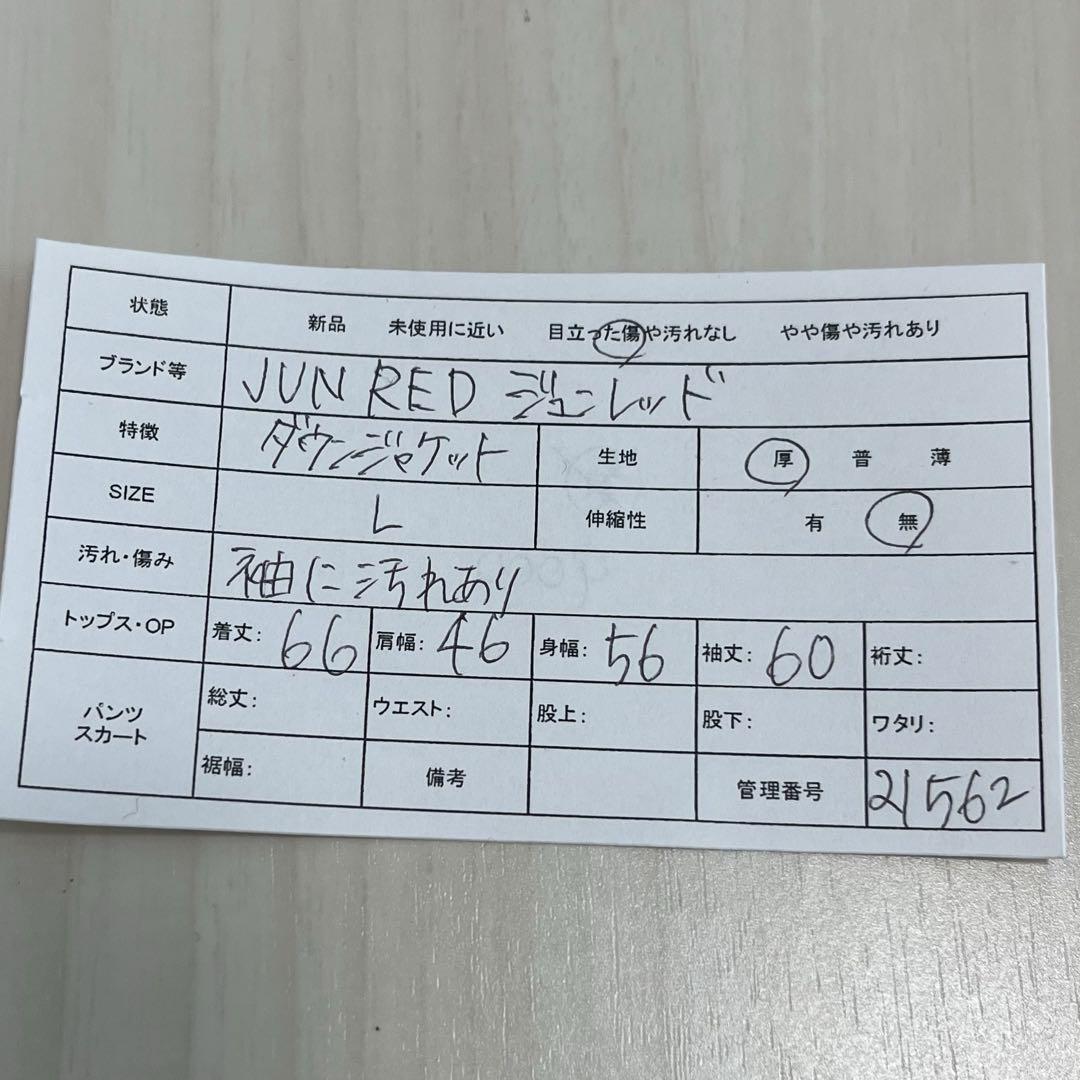 状態 新品 未使用に近い 目立った傷や汚れなし やや傷や汚れあり
ブランド等 JUN RED ジュンレッド
特徴 ダウンジャケット 生地 厚 普 薄
SIZE L 伸縮性 有 無
汚れ・傷み 袖に汚れあり
トップス・OP 着丈: 66 肩幅: 46 身幅: 56 袖丈: 60 裄丈:
パンツ
スカート
総丈: ウエスト: 股上: 股下: ワタリ:
裾幅: 備考 管理番号 21562